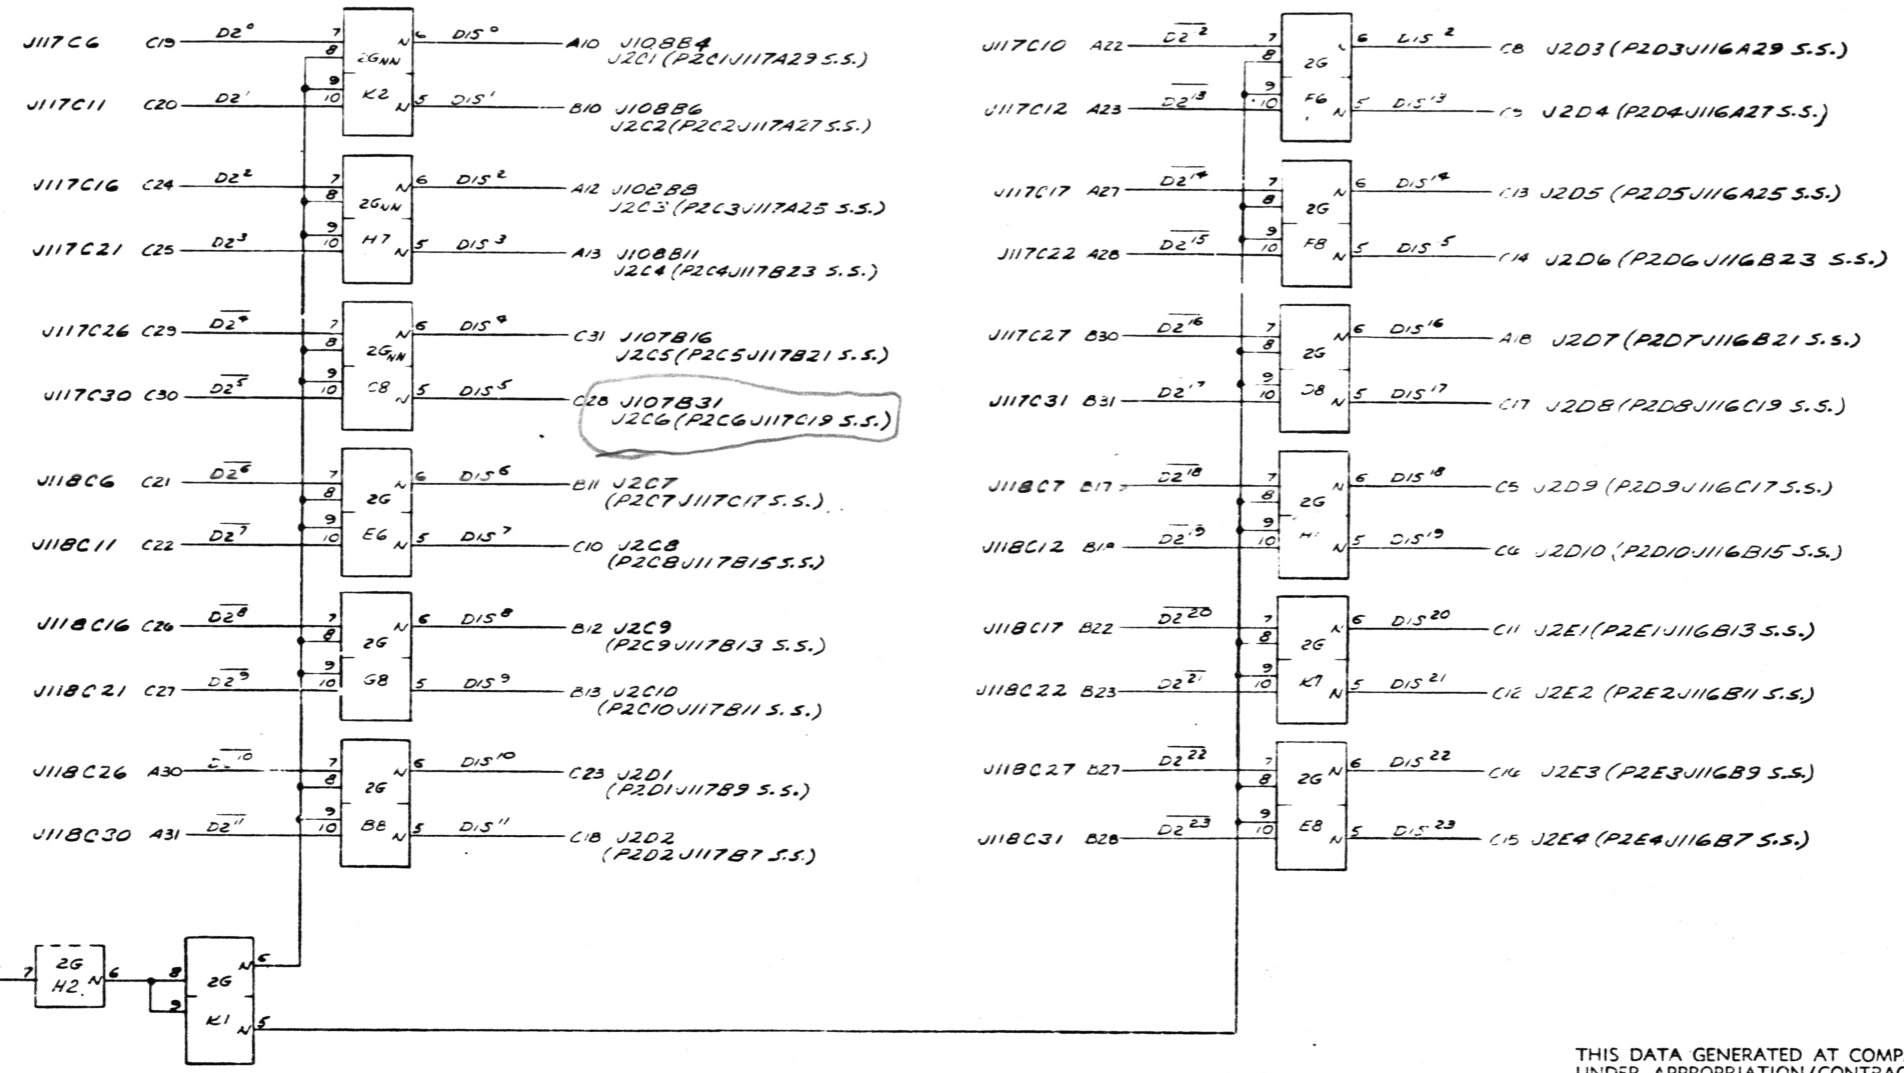 J117C6 C19 D2⁰ 7 8 2GNN N 6 DIS⁰ A10 J108B4
J2C1 (P2C1J117A29 S.S.)
J117C11 C20 D2¹ 9 10 K2 N 5 DIS¹ B10 J108B6
J2C2 (P2C2J117A27 S.S.)
J117C16 C24 D2² 7 8 2GNN N 6 DIS² A12 J108B8
J2C3 (P2C3J117A25 S.S.)
J117C21 C25 D2³ 9 10 H7 N 5 DIS³ A13 J108B11
J2C4 (P2C4J117B23 S.S.)
J117C26 C29 D2⁴ 7 8 2GNN N 6 DIS⁴ C31 J107B16
J2C5 (P2C5J117B21 S.S.)
J117C30 C30 D2⁵ 9 10 C8 N 5 DIS⁵ C28 J107B31
J2C6 (P2C6J117C19 S.S.)
J118C6 C21 D2⁶ 7 8 2G N 6 DIS⁶ B11 J2C7
(P2C7J117C17 S.S.)
J118C11 C22 D2⁷ 9 10 E6 N 5 DIS⁷ C10 J2C8
(P2C8J117B15 S.S.)
J118C16 C26 D2⁸ 7 8 2G N 6 DIS⁸ B12 J2C9
(P2C9J117B13 S.S.)
J118C21 C27 D2⁹ 9 10 G8 N 5 DIS⁹ B13 J2C10
(P2C10J117B11 S.S.)
J118C26 A30 7 8 2G N 6 DIS¹⁰ C23 J2D1
(P2D1J117B9 S.S.)
J118C30 A31 D2¹¹ 9 10 B8 N 5 DIS¹¹ C18 J2D2
(P2D2J117B7 S.S.)
7 2G H2 N 6 8 9 2G K1 N 6 N 5
J117C10 A22 D2 ² 7 8 2G 6 DIS ² C8 J2D3 (P2D3J116A29 S.S.)
J117C12 A23 D2¹³ 9 10 F6 N 5 DIS¹³ J2D4 (P2D4J116A27 S.S.)
J117C17 A27 D2¹⁴ 7 8 2G N 6 DIS¹⁴ C13 J2D5 (P2D5J116A25 S.S.)
J117C22 A28 D2¹⁵ 9 10 F8 N 5 DIS ⁵ C14 J2D6 (P2D6J116B23 S.S.)
J117C27 B30 D2¹⁶ 7 8 2G N 6 DIS¹⁶ A18 J2D7 (P2D7J116B21 S.S.)
J117C31 B31 D2¹⁷ 9 10 D8 N 5 DIS¹⁷ C17 J2D8 (P2D8J116C19 S.S.)
J118C7 B17 D2¹⁸ 7 8 2G N 6 DIS¹⁸ C5 J2D9 (P2D9J116C17 S.S.)
J118C12 D2¹⁹ 9 10 N 5 DIS¹⁹ J2D10 (P2D10J116B15 S.S.)
J118C17 B22 D2²⁰ 7 8 2G N 6 DIS²⁰ C11 J2E1 (P2E1J116B13 S.S.)
J118C22 B23 D2²¹ 9 10 K7 N 5 DIS²¹ C12 J2E2 (P2E2J116B11 S.S.)
J118C27 B27 D2²² 7 8 2G N 6 DIS²² C16 J2E3 (P2E3J116B9 S.S.)
J118C31 B28 D2²³ 9 10 E8 N 5 DIS²³ C15 J2E4 (P2E4J116B7 S.S.)
THIS DATA GENERATED AT COMP
UNDER APPROPRIATION/CONTRAC